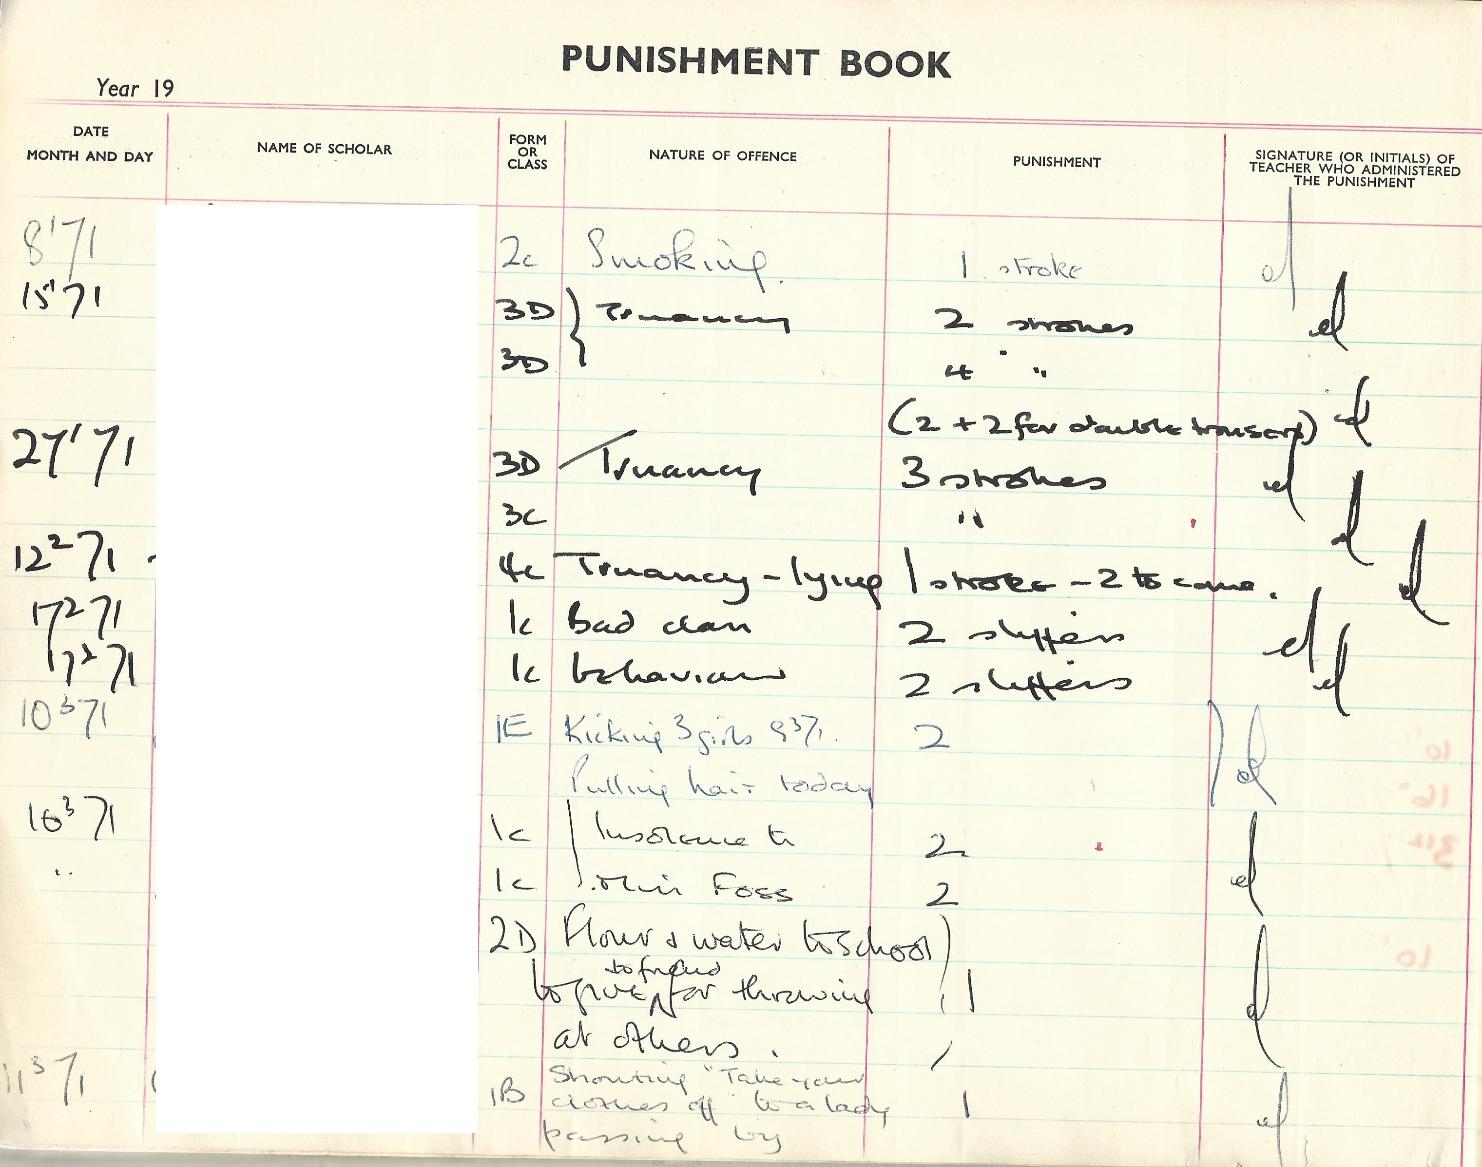 PUNISHMENT BOOK
Year 19
DATE MONTH AND DAY NAME OF SCHOLAR FORM OR CLASS NATURE OF OFFENCE PUNISHMENT SIGNATURE (OR INITIALS) OF TEACHER WHO ADMINISTERED THE PUNISHMENT
8 1 71 2c Smoking. 1 stroke
15 1 71 3D } Truancy 2 strokes
3D 4 "
(2 + 2 for double trousers)
27 1 71 3D Truancy 3 strokes
3C "
12 2 71 4c Truancy - lying 1 stroke - 2 to come.
17 2 71 1c Bad class 2 slippers
17 2 71 1c behaviour 2 slippers
10 3 71 1E Kicking 3 girls 9 3 71. 2
Pulling hair today
10 3 71 1c Insolence to 2
" 1c Miss Foss 2
2D Flour & water to school
to give to friend for throwing 1
at others.
11 3 71 1B Shouting "Take your
clothes off" to a lady 1
passing by